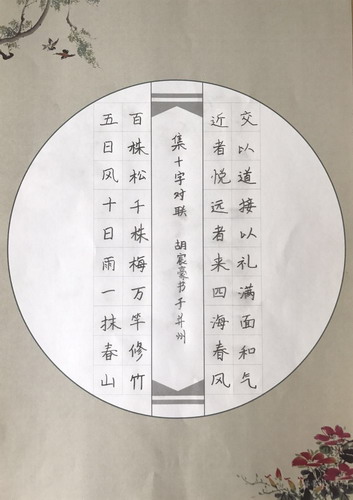 交以道接以礼满面和气
近者悦远者来四海春风
集十字对联 胡宸豪书于并州
百株松千株梅万竿修竹
五日风十日雨一抹春山